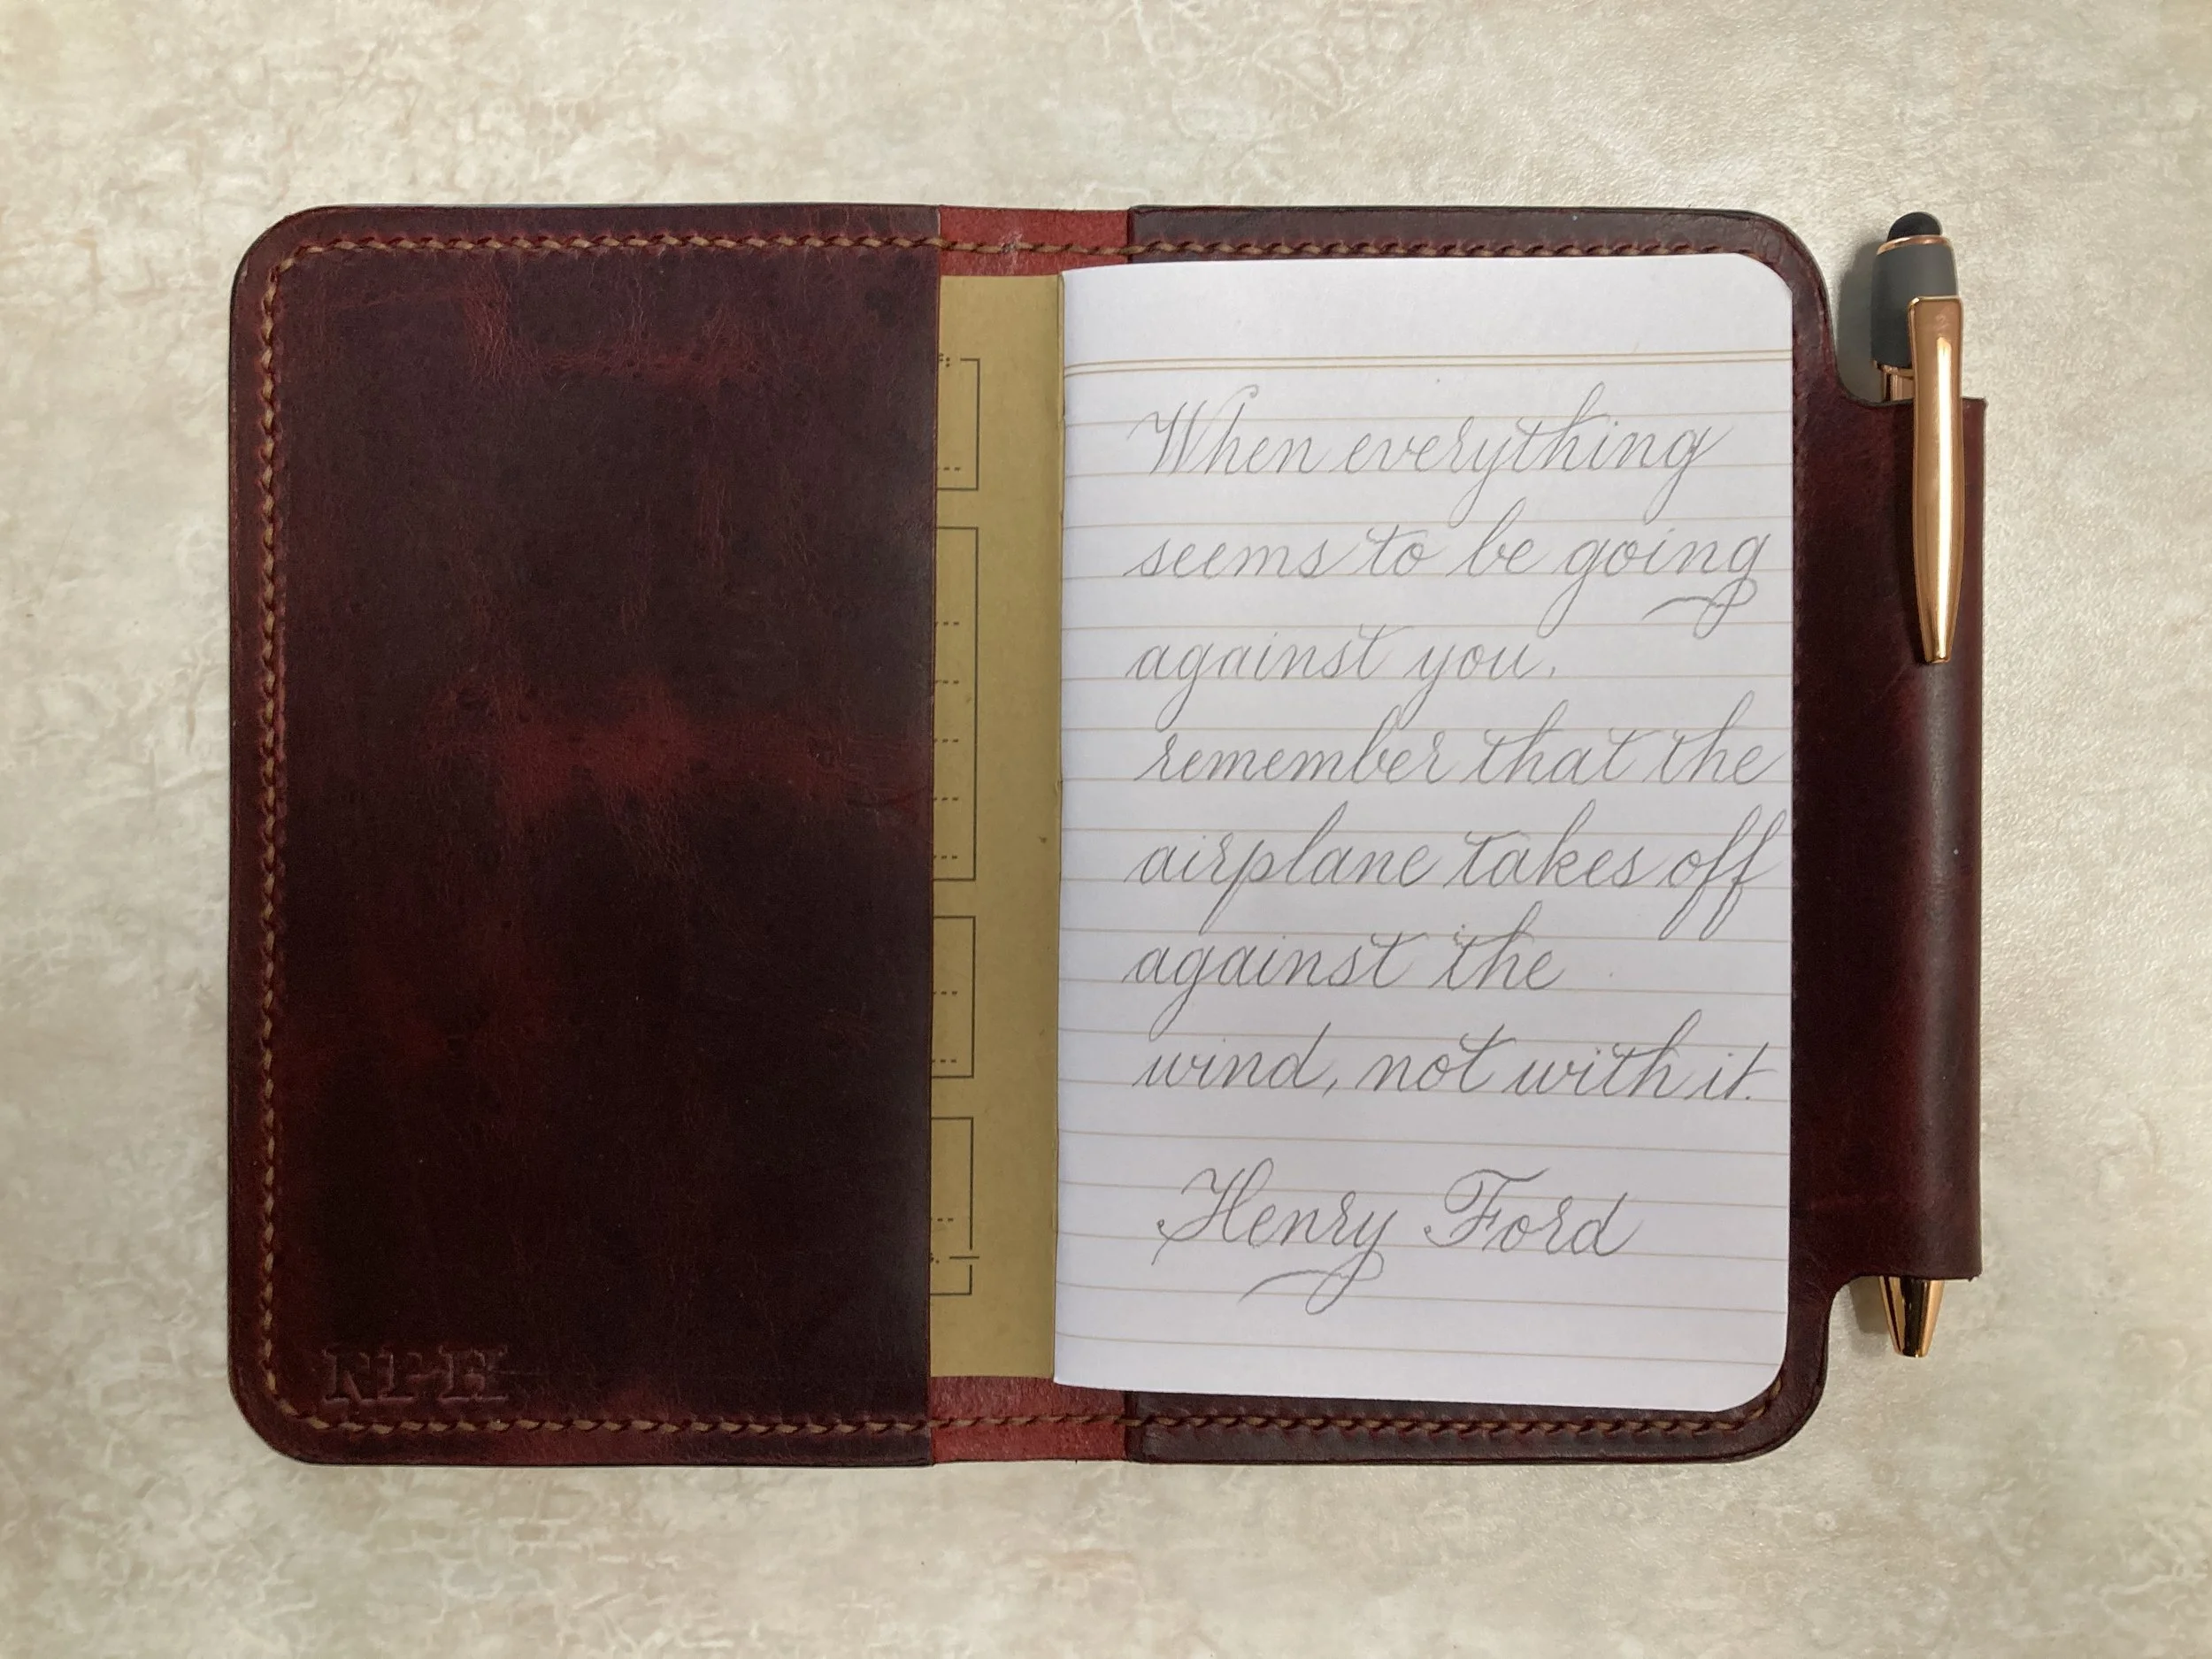 When everything
seems to be going
against you.
remember that the
airplane takes off
against the
wind, not with it.
Henry Ford